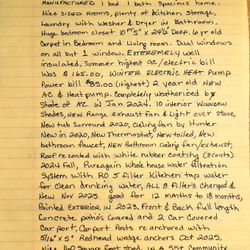 MANUFACTURED 1 bed 1 bath Spacious home.
Nice sized rooms, plenty of Kitchen Storage,
Laundry with Washer & Dryer in Bathroom.
Huge bedroom closet 10'5" x 24½" Deep. 6 yr old
Carpet in Bedroom and Living room. Dual windows
on all but 1 window. EXTREMELY well
insulated, Summer highest ac/electric bill
Was $165.00, WINTER ELECTRIC HEAT PUMP
Power bill $85.00 (Highest) 2 year old New
AC & Heat pump. Completely weatherized by
State of AZ in Jan 2024. 10 interior Window
Shades, New Range exhaust Fan & Light over Stove,
New tub Surround 2020, Ceiling fan by Hunter
New in 2020, New Thermostat, New toilet, New
bathroom faucet, New Bathroom Ceiling fan/exhaust,
Roof recoated with white rubber coating (3 coats)
2024 Fall, Puregain whole house water filtration
System with RO 5 Filter Kitchen tap water
for Clean drinking water, ALL 8 Filters Changed &
New Nov 2025 good for 12 months to 18 months,
Painted Exterior in 2023. Front & Back full length
Concrete patios Covered and 2 Car Covered
Car port, Carport Posts re anchored with
5/16" x 5" Redhead wedge anchors Oct 2025,